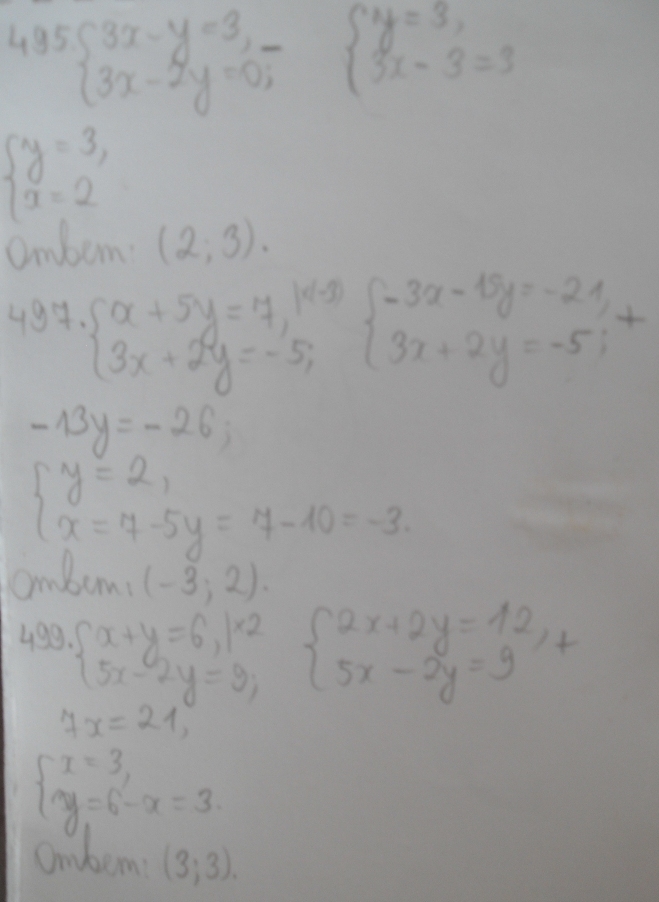 495. { 3x - y = 3, - { y = 3,
{ 3x - 2y = 0; { 3x - 3 = 3
{ y = 3,
{ x = 2
Ответ: (2; 3).
497. { x + 5y = 7, |×(-3) { -3x - 15y = -21, +
{ 3x + 2y = -5; { 3x + 2y = -5;
-13y = -26;
{ y = 2,
{ x = 7 - 5y = 7 - 10 = -3.
Ответ: (-3; 2).
499. { x + y = 6, |×2 { 2x + 2y = 12, +
{ 5x - 2y = 9; { 5x - 2y = 9
7x = 21,
{ x = 3,
{ y = 6 - x = 3.
Ответ: (3; 3).